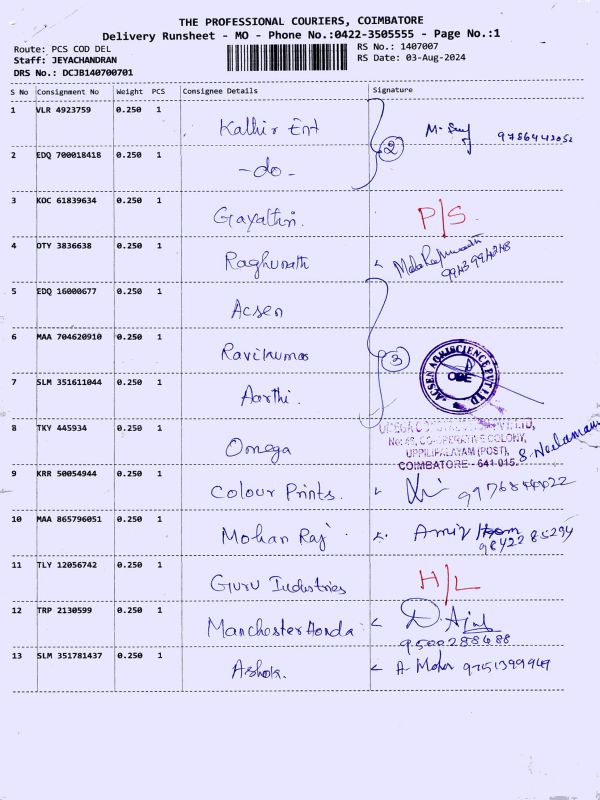 THE PROFESSIONAL COURIERS, COIMBATORE
Delivery Runsheet - MO - Phone No.:0422-3505555 - Page No.:1
Route: PCS COD DEL
RS No.: 1407007
Staff: JEYACHANDRAN
RS Date: 03-Aug-2024
DRS No.: DCJB140700701
S No Consignment No Weight PCS Consignee Details Signature
1 VLR 4923759 0.250 1 Kathir Ent
2 EDQ 700018418 0.250 1 -do- 2
3 KOC 61839634 0.250 1 Gayathri. P/S.
4 OTY 3836638 0.250 1 Raghunath
5 EDQ 16000677 0.250 1 Acsen
6 MAA 704620910 0.250 1 Ravikumar 3
7 SLM 351611044 0.250 1 Aarthi.
ACSEN AGRISCIENCE PVT LTD
8 TKY 445934 0.250 1 Omega
No: 49, CO-OPERATIVE COLONY,
UPPILIPALAYAM (POST),
COIMBATORE - 641 015.
9 KRR 50054944 0.250 1 Colour Prints.
10 MAA 865796051 0.250 1 Mohan Raj
11 TLY 12056742 0.250 1 Guru Industries H/L
12 TRP 2130599 0.250 1 Manchester Honda
9500288688
13 SLM 351781437 0.250 1 Ashok.